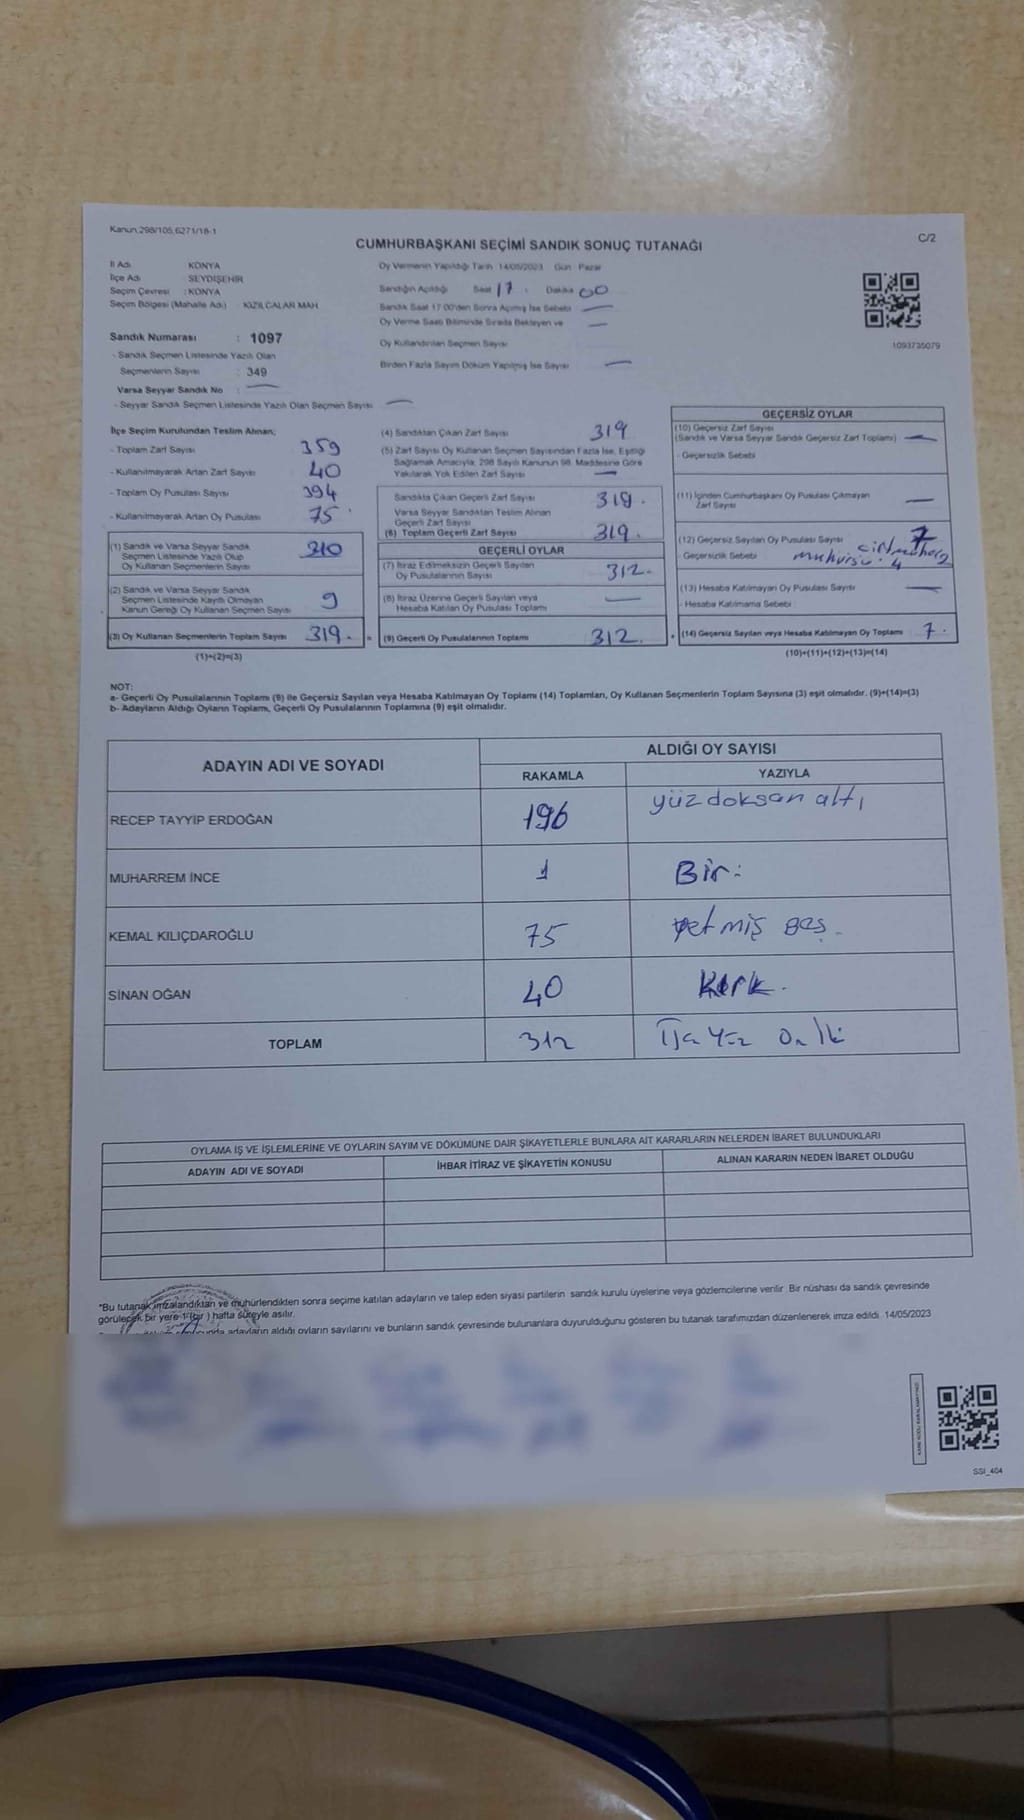 Kanun.298/105,6271/18-1
C/2
CUMHURBAŞKANI SEÇİMİ SANDIK SONUÇ TUTANAĞI
İl Adı KONYA
İlçe Adı SEYDİŞEHİR
Seçim Çevresi : KONYA
Seçim Bölgesi (Mahalle Adı) : KIZILCALAR MAH
Oy Vermenin Yapıldığı Tarih 14/05/2023 Gün Pazar
Sandığın Açıldığı Saat 17 : Dakika 00
Sandık Saat 17.00'den Sonra Açılmış İse Sebebi —
Oy Verme Saati Bitiminde Sırada Bekleyen ve —
Oy Kullandırılan Seçmen Sayısı
Birden Fazla Sayım Döküm Yapılmış İse Sayısı —
1093735079
Sandık Numarası : 1097
- Sandık Seçmen Listesinde Yazılı Olan
Seçmenlerin Sayısı : 349
Varsa Seyyar Sandık No : —
- Seyyar Sandık Seçmen Listesinde Yazılı Olan Seçmen Sayısı —
İlçe Seçim Kurulundan Teslim Alınan;
- Toplam Zarf Sayısı 359
- Kullanılmayarak Artan Zarf Sayısı 40
- Toplam Oy Pusulası Sayısı 394
- Kullanılmayarak Artan Oy Pusulası 75
(1) Sandık ve Varsa Seyyar Sandık
Seçmen Listesinde Yazılı Olup
Oy Kullanan Seçmenlerin Sayısı 310
(2) Sandık ve Varsa Seyyar Sandık
Seçmen Listesinde Kayıtlı Olmayan
Kanun Gereği Oy Kullanan Seçmen Sayısı 9
(3) Oy Kullanan Seçmenlerin Toplam Sayısı 319.
(1)+(2)=(3)
(4) Sandıktan Çıkan Zarf Sayısı 319
(5) Zarf Sayısı Oy Kullanan Seçmen Sayısından Fazla İse, Eşitliği
Sağlamak Amacıyla, 298 Sayılı Kanunun 98. Maddesine Göre
Yakılarak Yok Edilen Zarf Sayısı —
Sandıkta Çıkan Geçerli Zarf Sayısı 319.
Varsa Seyyar Sandıktan Teslim Alınan
Geçerli Zarf Sayısı
(6) Toplam Geçerli Zarf Sayısı 319.
GEÇERLİ OYLAR
(7) İtiraz Edilmeksizin Geçerli Sayılan
Oy Pusulalarının Sayısı 312.
(8) İtiraz Üzerine Geçerli Sayılan veya
Hesaba Katılan Oy Pusulası Toplamı —
= (9) Geçerli Oy Pusulalarının Toplamı 312.
GEÇERSİZ OYLAR
(10) Geçersiz Zarf Sayısı
(Sandık ve Varsa Seyyar Sandık Geçersiz Zarf Toplamı) —
- Geçersizlik Sebebi
(11) İçinden Cumhurbaşkanı Oy Pusulası Çıkmayan
Zarf Sayısı —
(12) Geçersiz Sayılan Oy Pusulası Sayısı 7
- Geçersizlik Sebebi
(13) Hesaba Katılmayan Oy Pusulası Sayısı —
- Hesaba Katılmama Sebebi
+ (14) Geçersiz Sayılan veya Hesaba Katılmayan Oy Toplamı 7.
(10)+(11)+(12)+(13)=(14)
NOT:
a- Geçerli Oy Pusulalarının Toplamı (9) ile Geçersiz Sayılan veya Hesaba Katılmayan Oy Toplamı (14) Toplamları, Oy Kullanan Seçmenlerin Toplam Sayısına (3) eşit olmalıdır. (9)+(14)=(3)
b- Adayların Aldığı Oyların Toplamı, Geçerli Oy Pusulalarının Toplamına (9) eşit olmalıdır.
ADAYIN ADI VE SOYADI
ALDIĞI OY SAYISI
RAKAMLA YAZIYLA
RECEP TAYYİP ERDOĞAN 196 yüzdoksan altı
MUHARREM İNCE 1 Bir:
KEMAL KILIÇDAROĞLU 75 yetmiş beş.
SİNAN OĞAN 40 Kırk.
TOPLAM 312 Üç Yüz On İki
OYLAMA İŞ VE İŞLEMLERİNE VE OYLARIN SAYIM VE DÖKÜMÜNE DAİR ŞİKAYETLERLE BUNLARA AİT KARARLARIN NELERDEN İBARET BULUNDUKLARI
ADAYIN ADI VE SOYADI İHBAR İTİRAZ VE ŞİKAYETİN KONUSU ALINAN KARARIN NEDEN İBARET OLDUĞU
*Bu tutanak imzalandıktan ve mühürlendikten sonra seçime katılan adayların ve talep eden siyasi partilerin sandık kurulu üyelerine veya gözlemcilerine verilir. Bir nüshası da sandık çevresinde
görülecek bir yere 1 (Bir) hafta süreyle asılır.
adayların aldığı oyların sayılarını ve bunların sandık çevresinde bulunanlara duyurulduğunu gösteren bu tutanak tarafımızdan düzenlenerek imza edildi. 14/05/2023
SSI_404